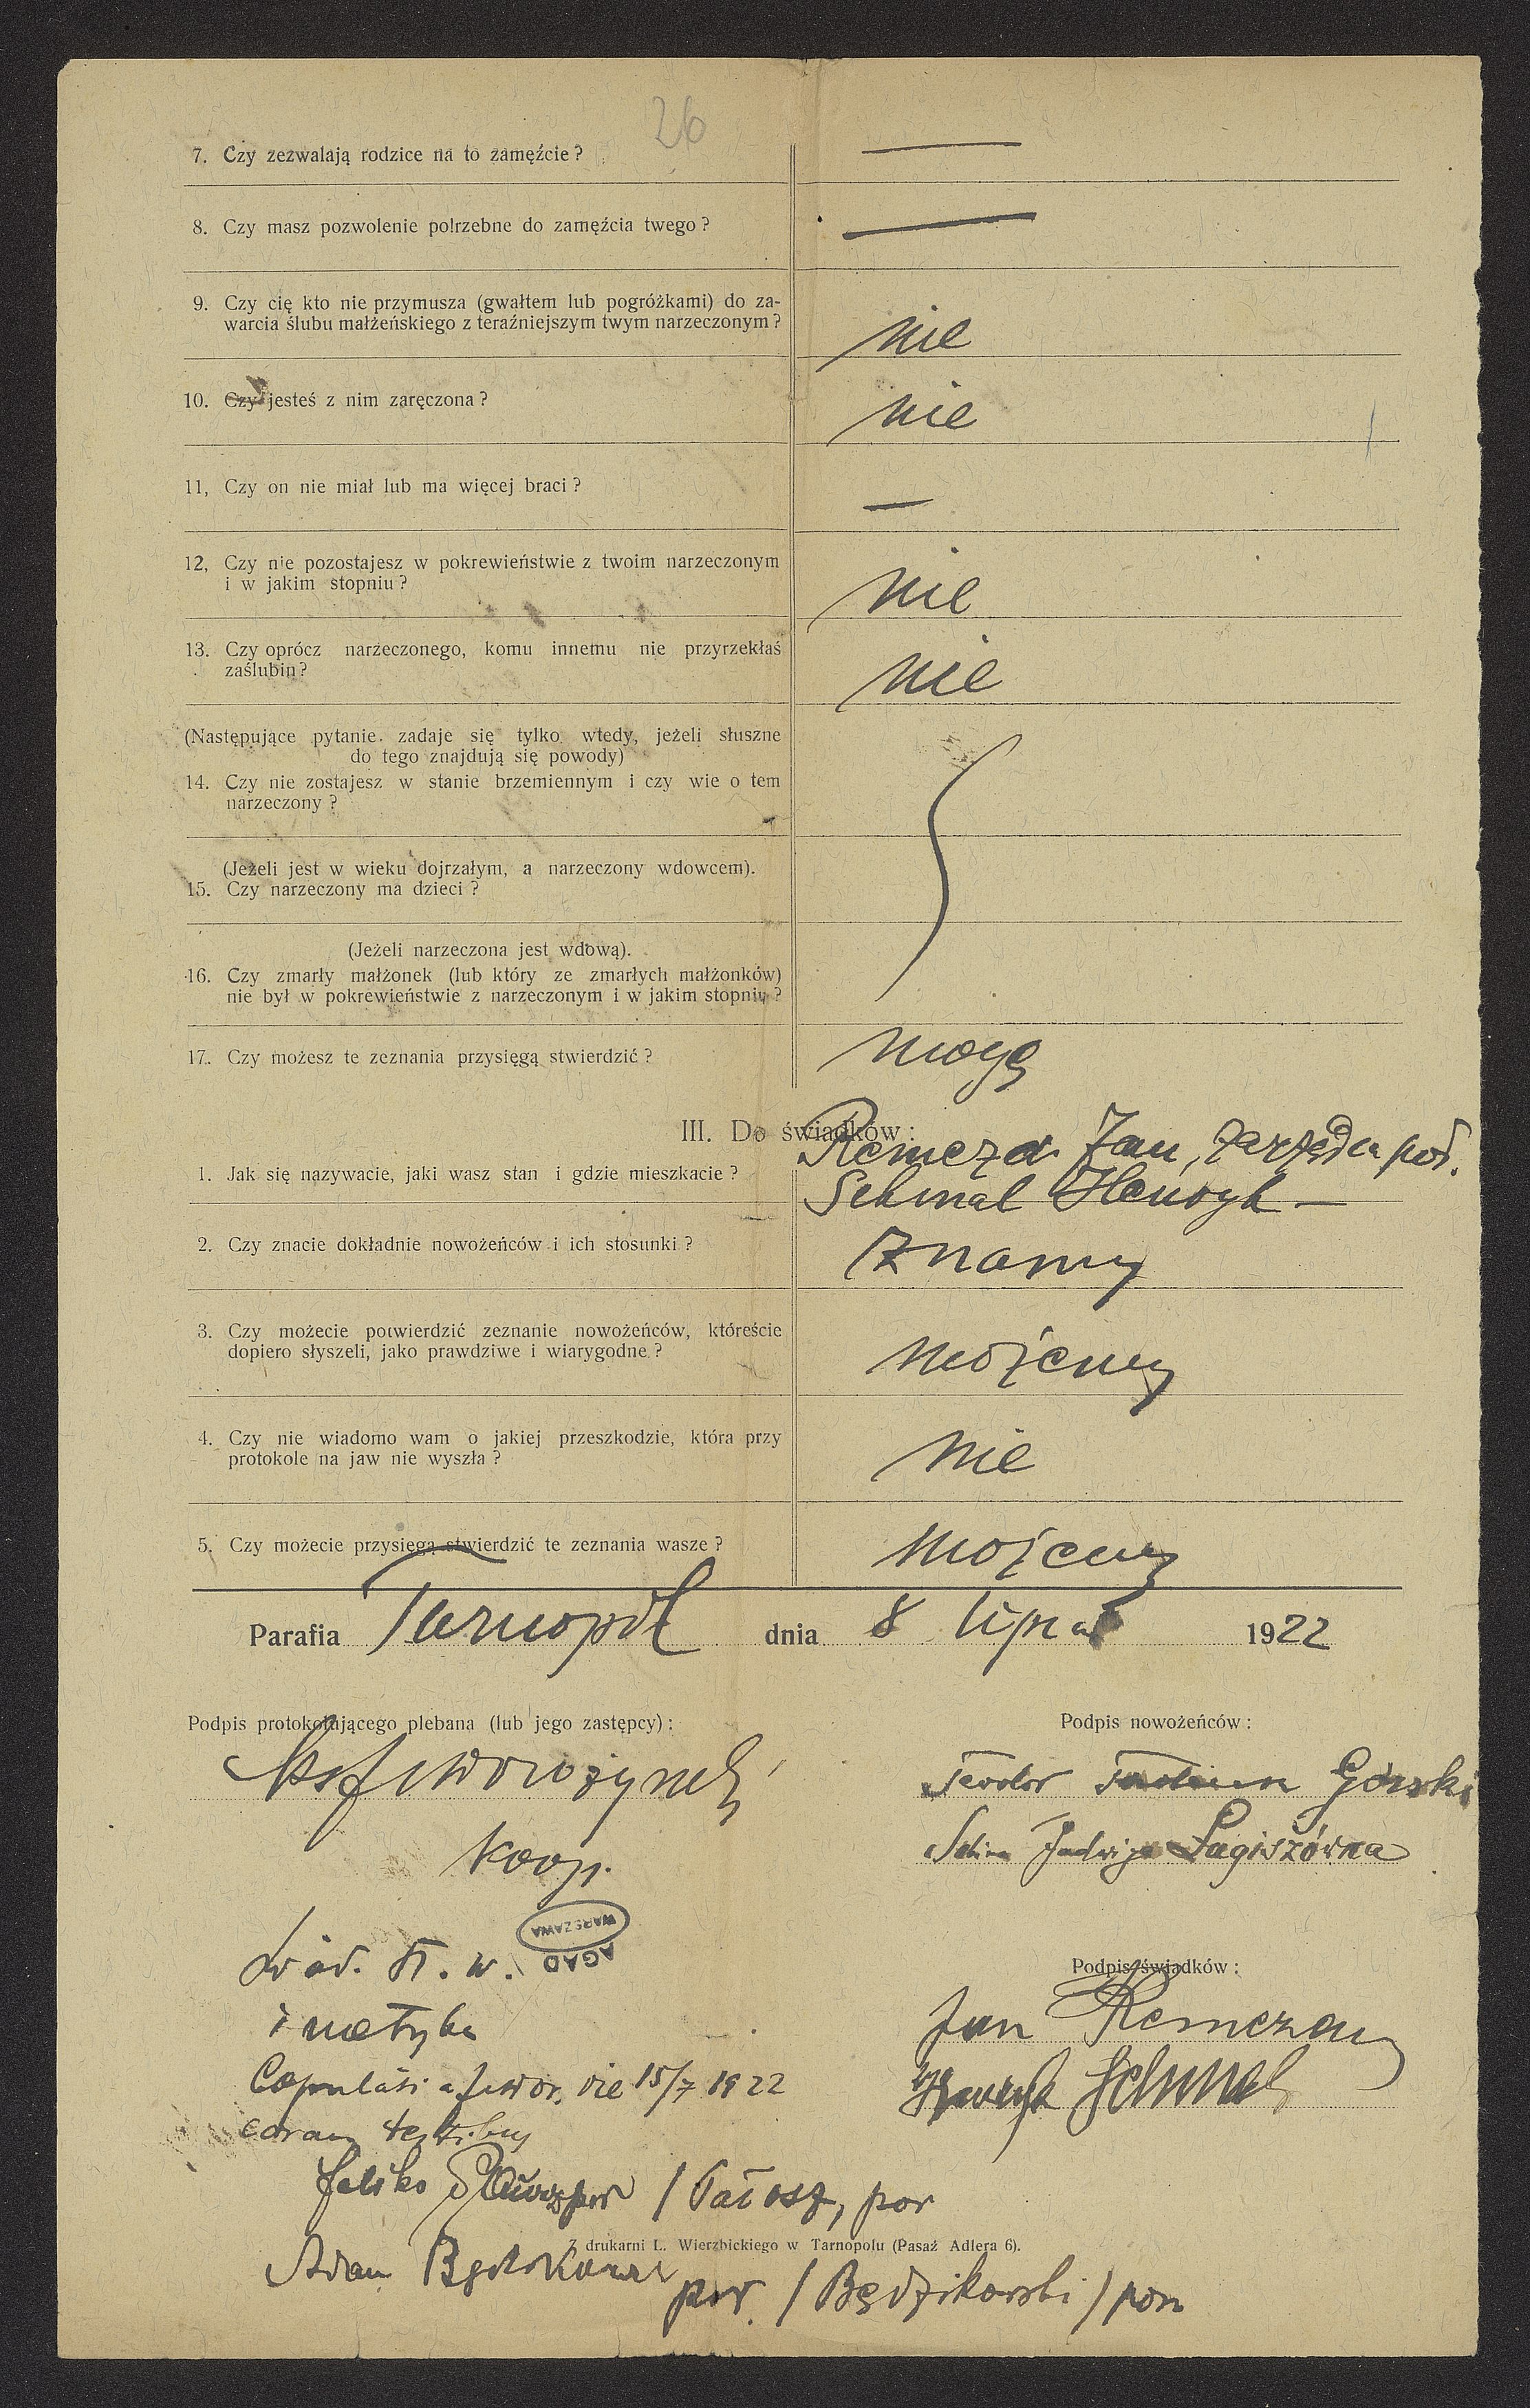 26
7. Czy zezwalają rodzice na to zamęźcie ? —
8. Czy masz pozwolenie potrzebne do zamęźcia twego ? —
9. Czy cię kto nie przymusza (gwałtem lub pogróżkami) do za-
warcia ślubu małżeńskiego z teraźniejszym twym narzeczonym ? nie
10. Czy jesteś z nim zaręczona ? nie
11, Czy on nie miał lub ma więcej braci ? —
12, Czy nie pozostajesz w pokrewieństwie z twoim narzeczonym
i w jakim stopniu ? nie
13. Czy oprócz narzeczonego, komu innemu nie przyrzekłaś
zaślubin ? nie
(Następujące pytanie zadaje się tylko wtedy, jeżeli słuszne
do tego znajdują się powody)
14. Czy nie zostajesz w stanie brzemiennym i czy wie o tem
narzeczony ?
(Jeżeli jest w wieku dojrzałym, a narzeczony wdowcem).
15. Czy narzeczony ma dzieci ?
(Jeżeli narzeczona jest wdową).
16. Czy zmarły małżonek (lub który ze zmarłych małżonków)
nie był w pokrewieństwie z narzeczonym i w jakim stopniu ?
17. Czy możesz te zeznania przysięgą stwierdzić ? mogę
III. Do świadków :
Remeza Jan, zarządca
1. Jak się nazywacie, jaki wasz stan i gdzie mieszkacie ?
Schmal Henryk —
2. Czy znacie dokładnie nowożeńców i ich stosunki ? Znamy
3. Czy możecie potwierdzić zeznanie nowożeńców, któreście
dopiero słyszeli, jako prawdziwe i wiarygodne ? możemy
4. Czy nie wiadomo wam o jakiej przeszkodzie, która przy
protokole na jaw nie wyszła ? nie
5. Czy możecie przysięgą stwierdzić te zeznania wasze ? możemy
Parafia Tarnopól dnia 8 lipca 1922
Podpis protokołującego plebana (lub jego zastępcy) :
koop.
Podpis nowożeńców :
Teodor Górski
Jadwiga Łagiszówna
AGAD
WARSZAWA
i metryka
Podpis świadków :
Jan
Henryk Schmal
die 15/7 1922
coram testibus
por
Z drukarni L. Wierzbickiego w Tarnopolu (Pasaż Adlera 6).
Adam
por. / Będzikowski / por